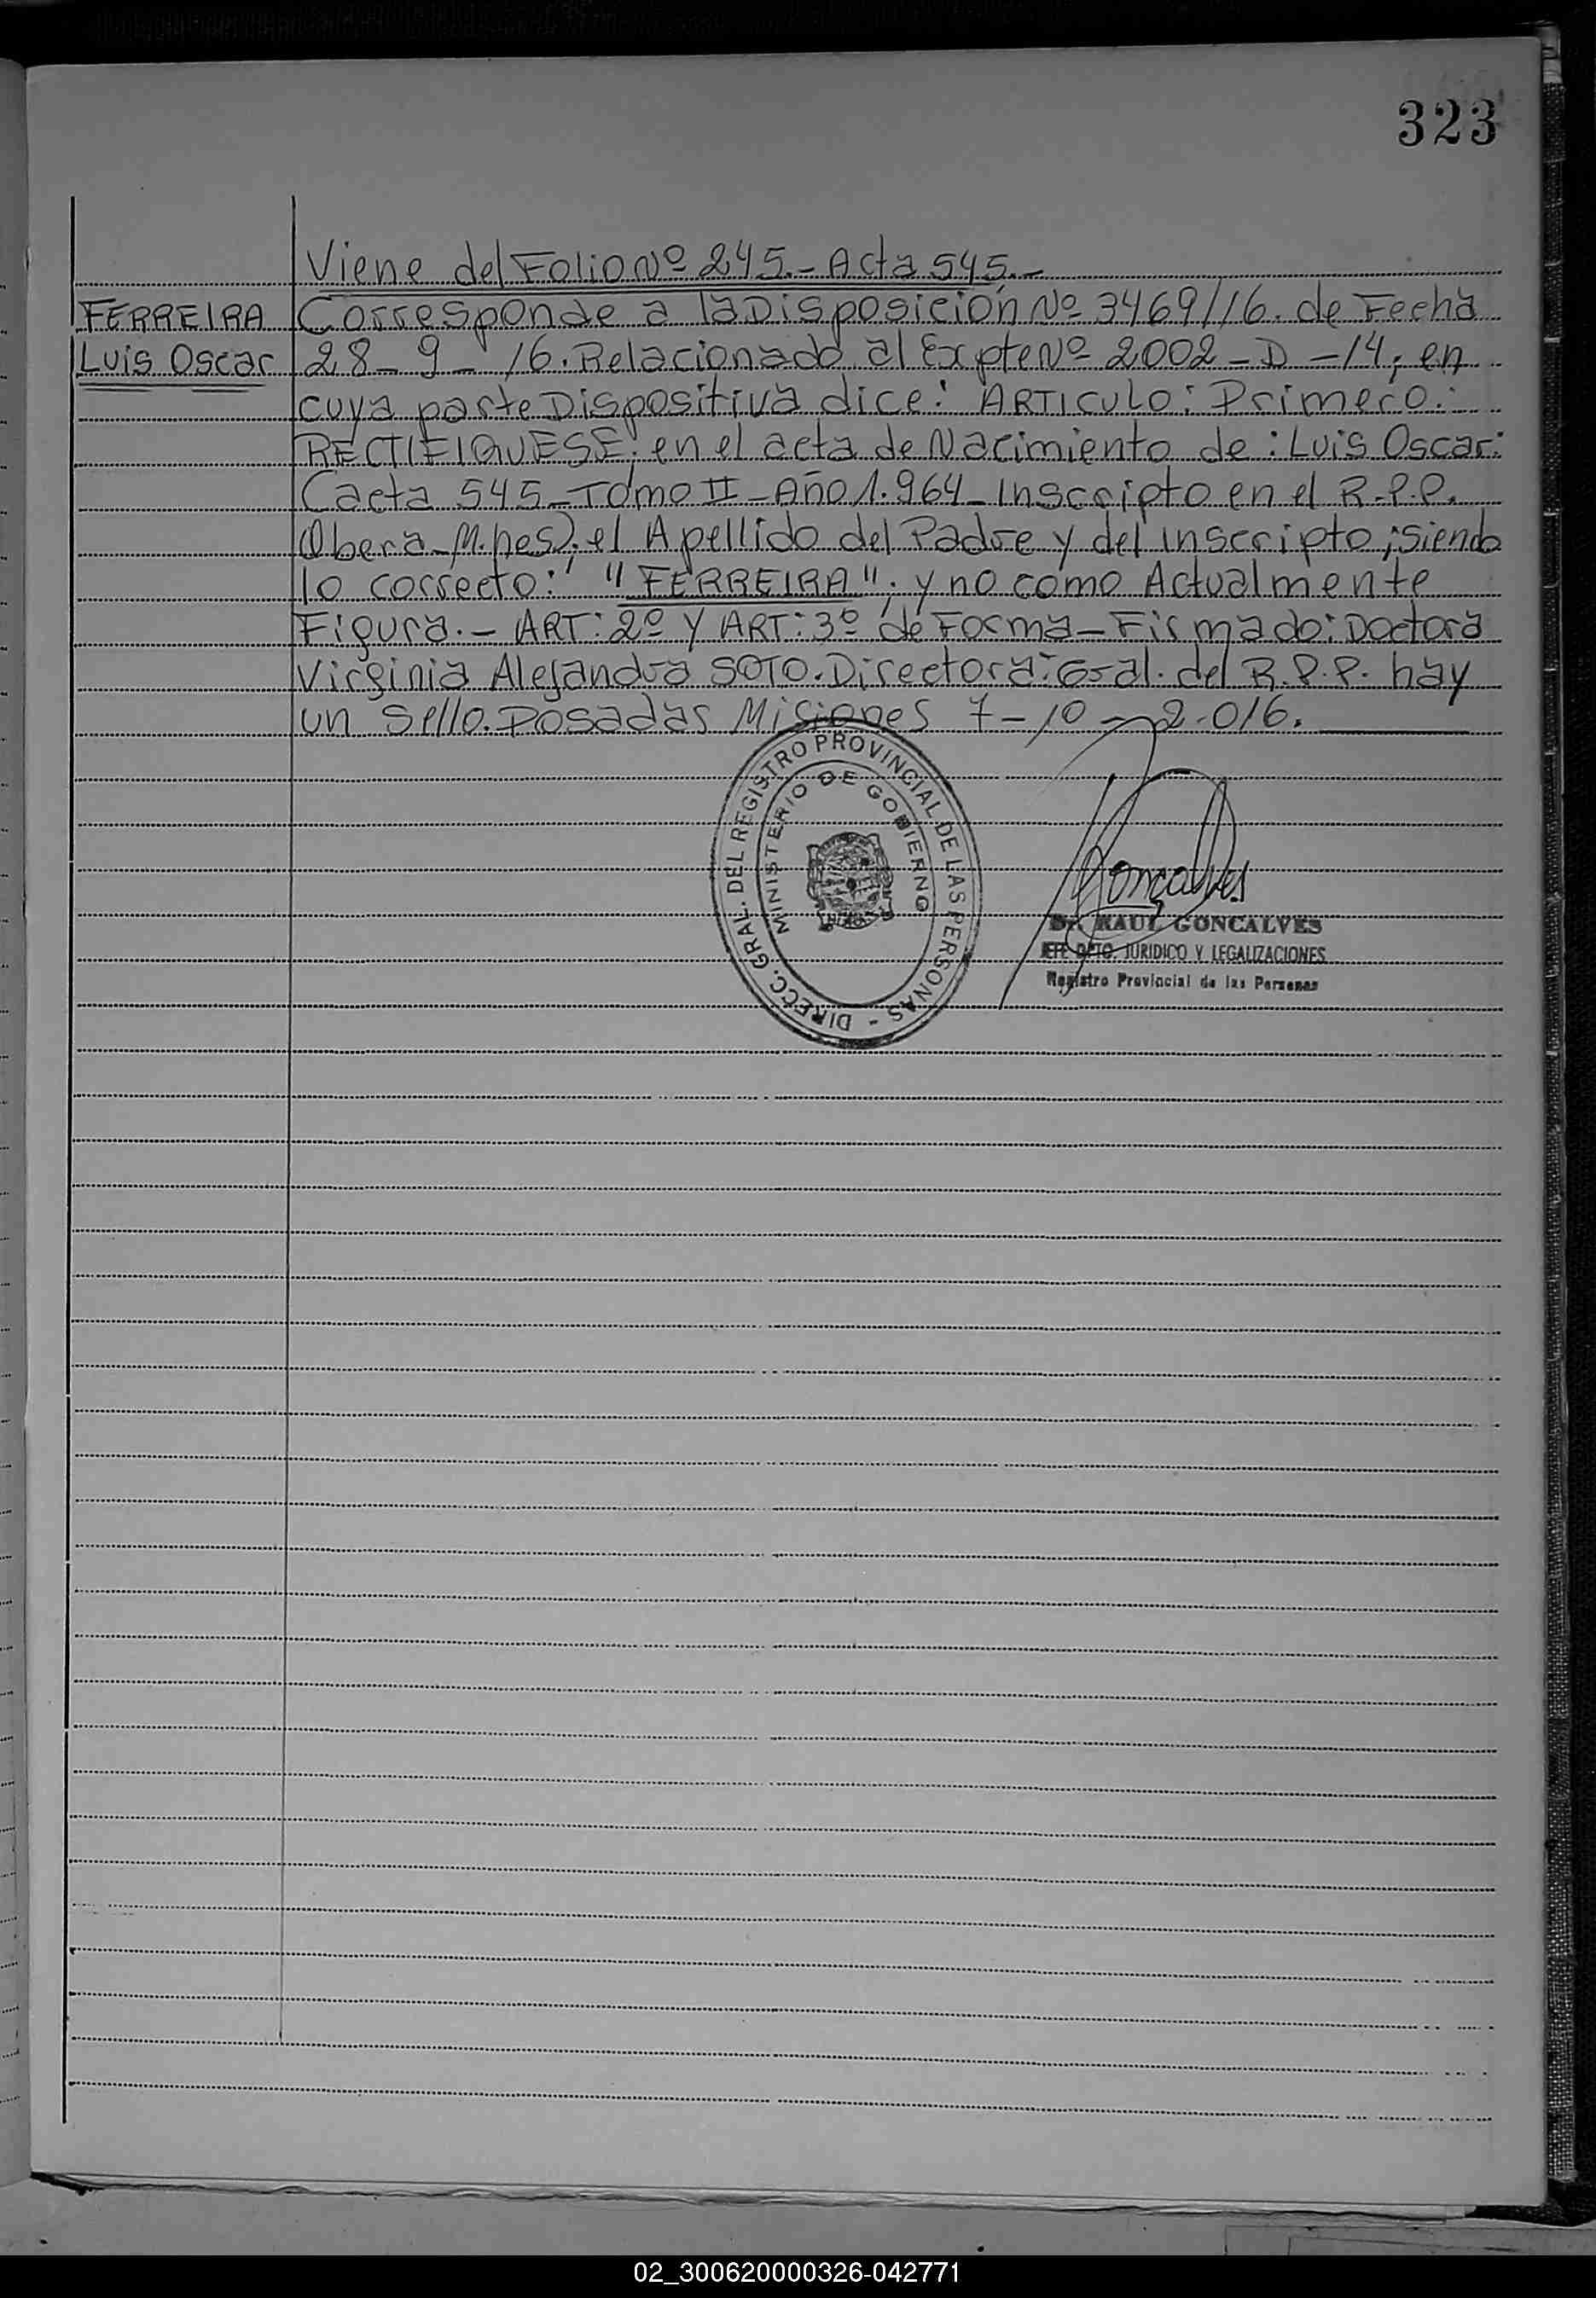 323
Viene del Folio Nº 245.- Acta 545.-
FERREIRA Corresponde a la Disposición Nº 3469/16. de Fecha
Luis Oscar 28-9-16. Relacionado al Expte Nº 2002-D-14; en
cuya parte Dispositiva dice: ARTICULO: Primero.:
RECTIFIQUESE; en el acta de Nacimiento de: Luis Oscar:
(acta 545-Tomo II-Año 1.964-Inscripto en el R.P.P.
Obera-M.nes); el Apellido del Padre y del inscripto; siendo
lo correcto: "FERREIRA"; y no como Actualmente
Figura.- ART: 2º Y ART: 3º de Forma-Firmado: Doctora
Virginia Alejandra SOTO. Directora: Gral. del R.P.P. hay
un Sello. Posadas Misiones 7-10-2.016.
DIRECC. GRAL. DEL REGISTRO PROVINCIAL DE LAS PERSONAS -
MINISTERIO DE GOBIERNO
Gonçalves
Dr. RAUL GONCALVES
JEFE DPTO. JURIDICO Y LEGALIZACIONES
Registro Provincial de las Personas
02_300620000326-042771